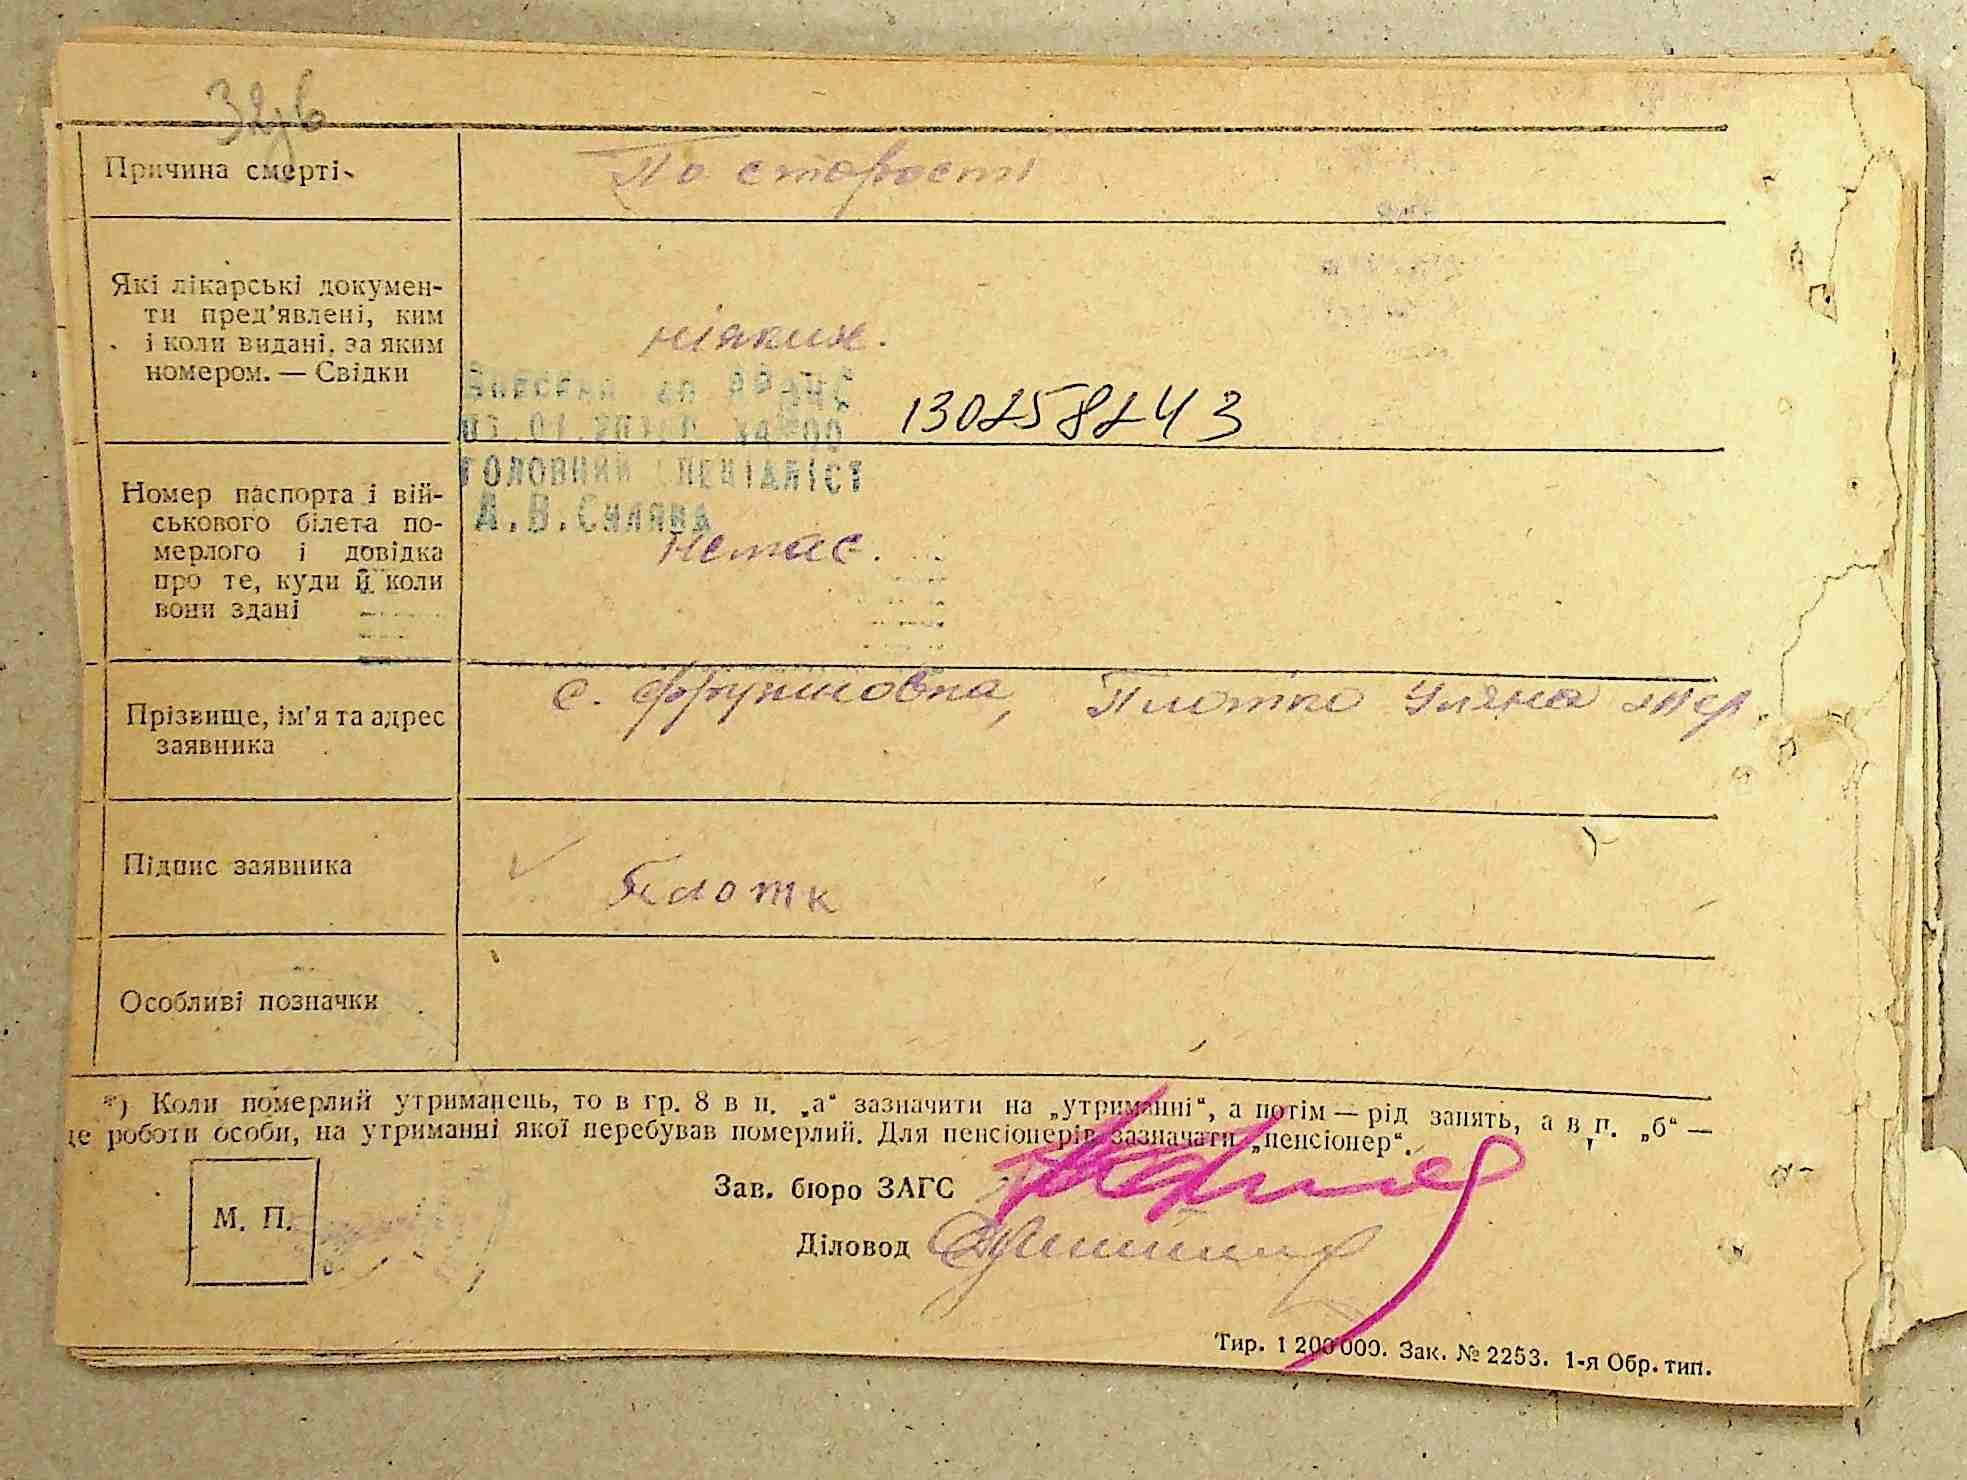 32зв
Причина смерті
По старості
Які лікарські докумен-
ти пред'явлені, ким
і коли видані, за яким
номером. — Свідки
ніяких.
130258243
ГОЛОВНИЙ СПЕЦІАЛІСТ
А.В.
Номер паспорта і вій-
ськового білета по-
мерлого і довідка
про те, куди й коли
вони здані
немає.
Прізвище, ім'я та адрес
заявника
с. Плотко Уляна
Підпис заявника
Плотк
Особливі позначки
*) Коли померлий утриманець, то в гр. 8 в п. „а“ зазначити на „утриманні“, а потім — рід занять, а в п. „б“ —
це роботи особи, на утриманні якої перебував померлий. Для пенсіонерів зазначати „пенсіонер“.
Зав. бюро ЗАГС
М. П.
Діловод
Тир. 1 200 000. Зак. № 2253. 1-я Обр. тип.